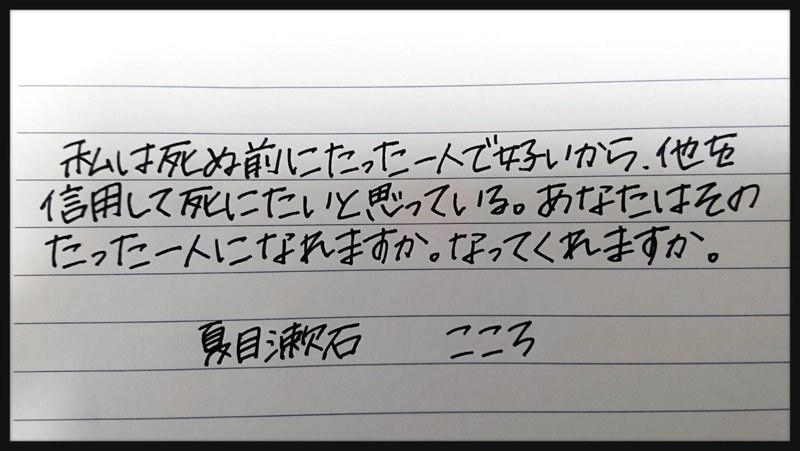 私は死ぬ前にたった一人で好いから、他を
信用して死にたいと思っている。あなたはその
たった一人になれますか。なってくれますか。
夏目漱石　　こころ